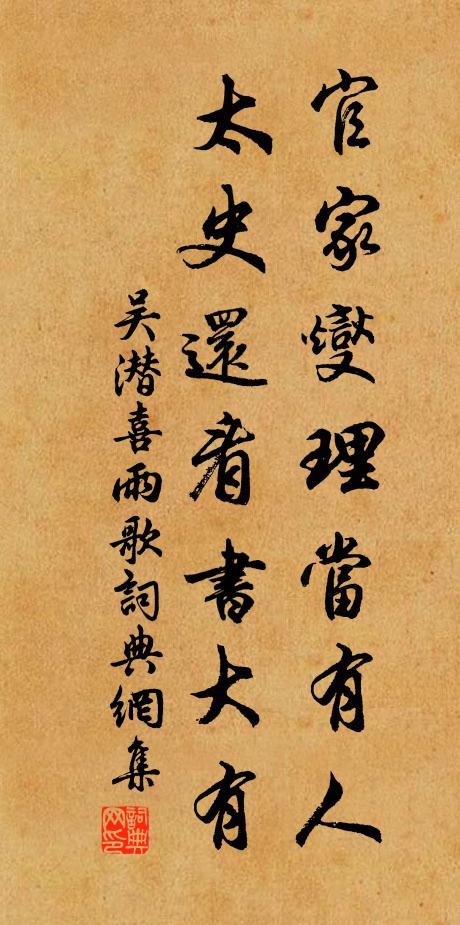 官家燮理當有人
太史還看書大有
吴潛喜雨歌詞典網集
詞典网印